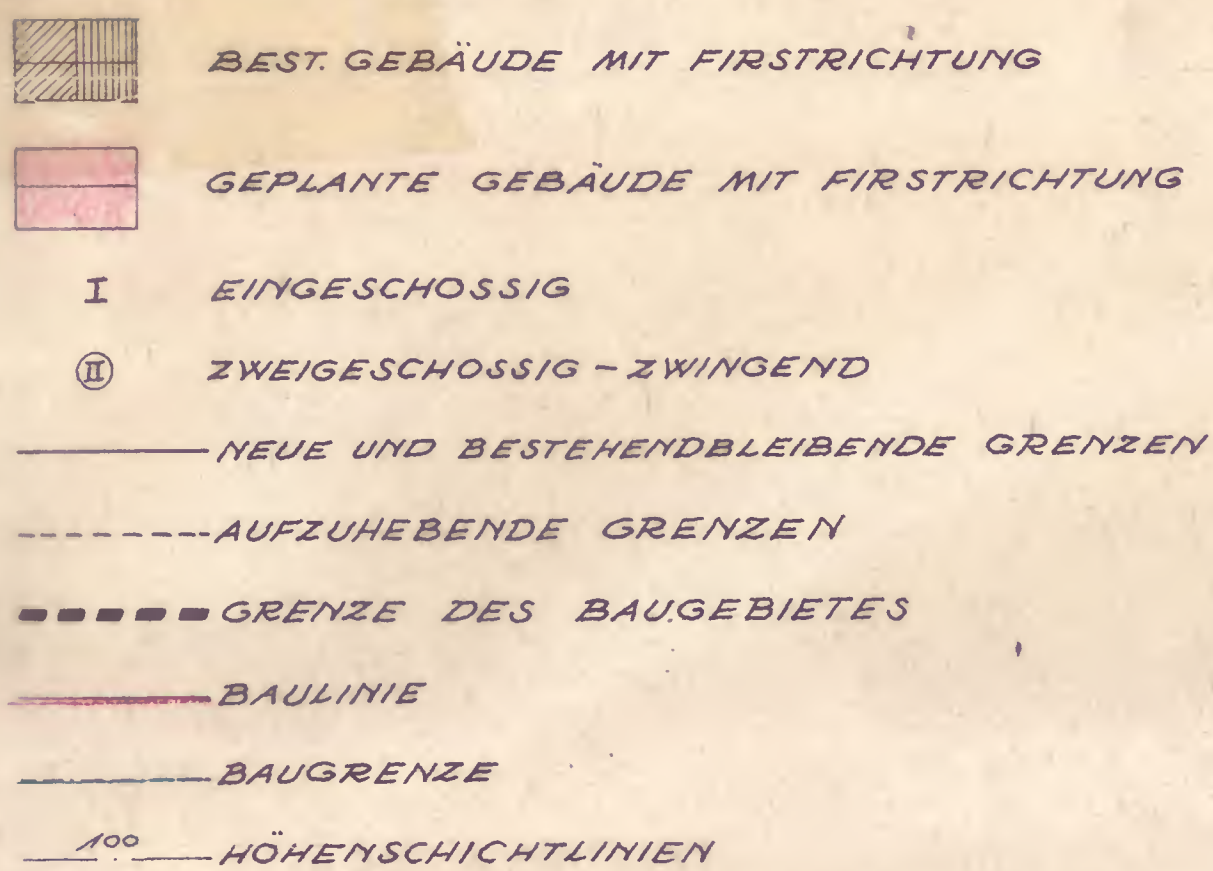 BEST. GEBÄUDE MIT FIRSTRICHTUNG
GEPLANTE GEBÄUDE MIT FIRSTRICHTUNG
I EINGESCHOSSIG
II ZWEIGESCHOSSIG - ZWINGEND
NEUE UND BESTEHENDBLEIBENDE GRENZEN
AUFZUHEBENDE GRENZEN
GRENZE DES BAUGEBIETES
BAULINIE
BAUGRENZE
100 HÖHENSCHICHTLINIEN